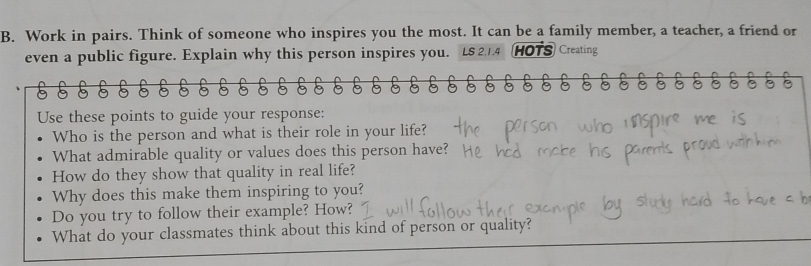 B. Work in pairs. Think of someone who inspires you the most. It can be a family member, a teacher, a friend or
even a public figure. Explain why this person inspires you. LS 2.1.4 HOTS Creating
Use these points to guide your response:
• Who is the person and what is their role in your life? the person who inspire me is
• What admirable quality or values does this person have? He had make his parents proud with him
• How do they show that quality in real life?
• Why does this make them inspiring to you?
• Do you try to follow their example? How? I will follow their example by study hard to have a
• What do your classmates think about this kind of person or quality?